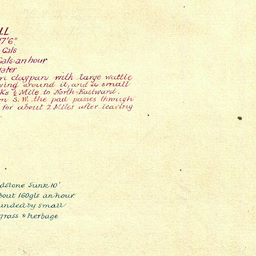 LL
7'6"
Gls
Gals an hour
ater
on claypan with large wattle
ing around it, and a small
½ Mile to North-Eastward.
m S.W. the pad passes through
for about 2 Miles after leaving
dstone Sunk 10'
bout 160gls an hour
unded by small
grass & herbage